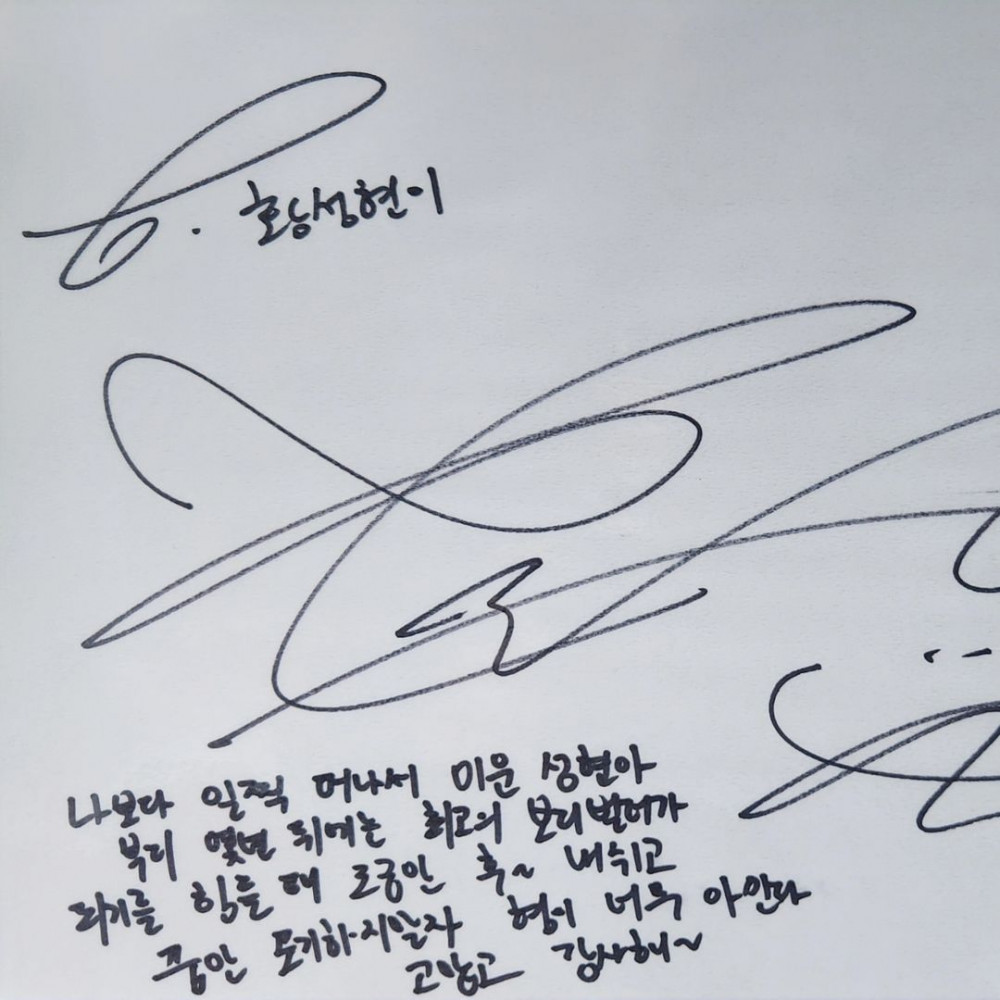 성현이
나보다 일찍 떠나서 미운 성현아
부디 몇년 뒤에는 최고의 보디빌더가
되기를 힘들 때 조금만 후~ 내쉬고
포기하지말자 형이 너무 아낀다
고맙고 감사해~